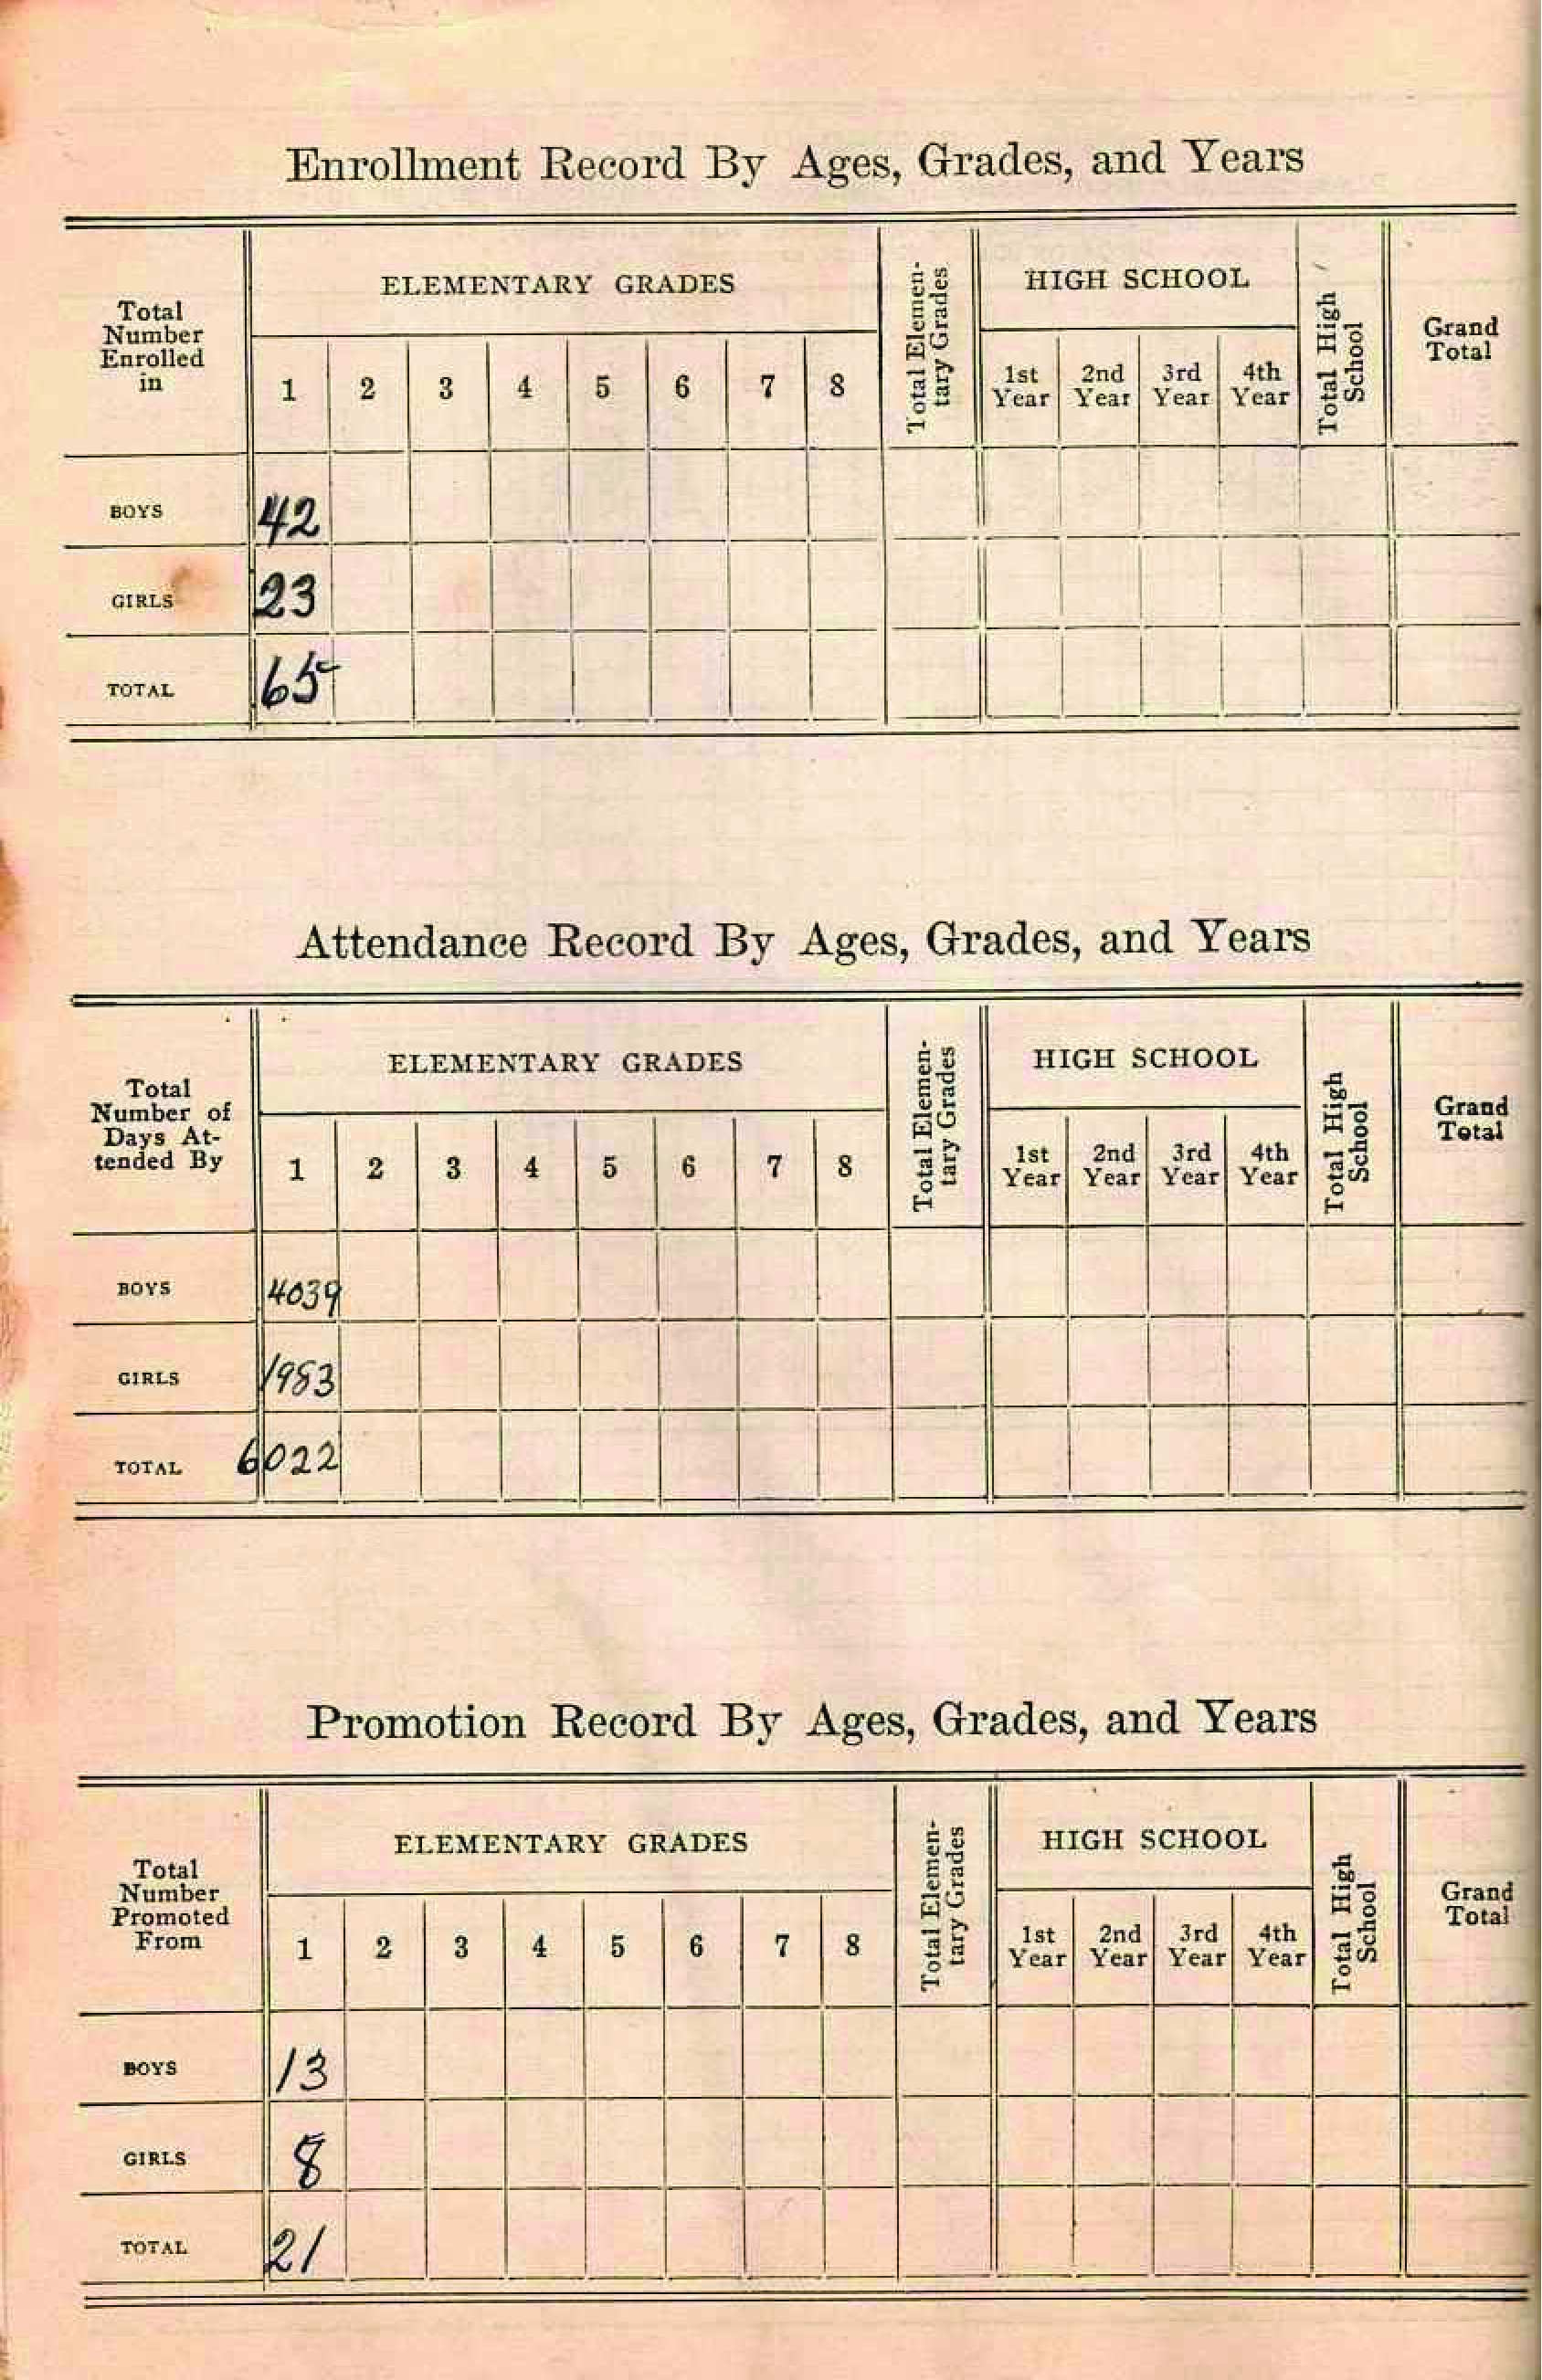 Enrollment Record By Ages, Grades, and Years
Total
Number
Enrolled
in
ELEMENTARY GRADES
1 2 3 4 5 6 7 8
Total Elemen-
tary Grades
HIGH SCHOOL
1st
Year
2nd
Year
3rd
Year
4th
Year
Total High
School
Grand
Total
BOYS 42
GIRLS 23
TOTAL 65
Attendance Record By Ages, Grades, and Years
Total
Number of
Days At-
tended By
ELEMENTARY GRADES
1 2 3 4 5 6 7 8
Total Elemen-
tary Grades
HIGH SCHOOL
1st
Year
2nd
Year
3rd
Year
4th
Year
Total High
School
Grand
Total
BOYS 4039
GIRLS 1983
TOTAL 6022
Promotion Record By Ages, Grades, and Years
Total
Number
Promoted
From
ELEMENTARY GRADES
1 2 3 4 5 6 7 8
Total Elemen-
tary Grades
HIGH SCHOOL
1st
Year
2nd
Year
3rd
Year
4th
Year
Total High
School
Grand
Total
BOYS 13
GIRLS 8
TOTAL 21